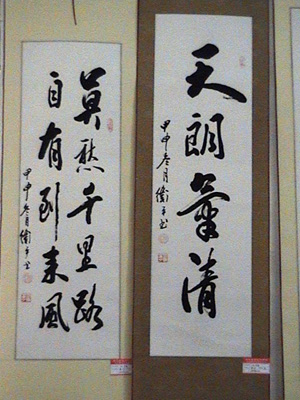 天朗氣清
甲申冬月衛平书
莫愁千里路
自有到来風
甲申冬月衛平书